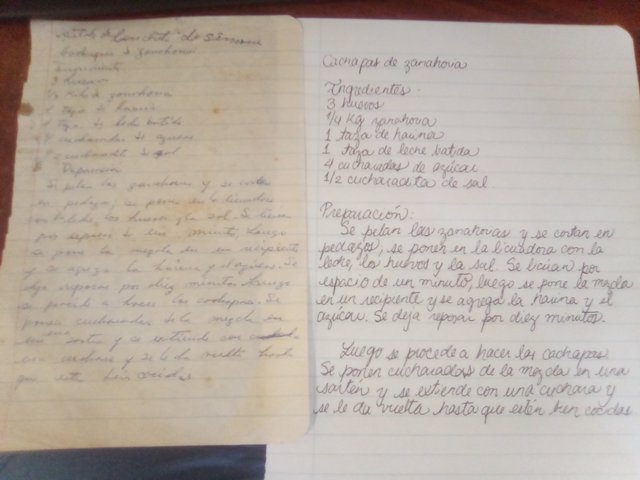 de
Cachapas de zanahoria
Ingredientes
3 huevos
kilo de zanahoria
1 taza de harina
1 taza de leche batida
4 cucharadas de azucar
cucharadita de sal
Preparacion
Se pelan las zanahorias y se cortan
en pedazos, se ponen en la licuadora
con la leche, los huevos y la sal. Se licuan
por espacio de un minuto, luego
se pone la mezcla en un recipiente
y se agrega la harina y el azucar. Se
deja reposar por diez minutos luego
se procede a hacer las cachapas. Se
ponen cucharadas de la mezcla en
sarten y se extiende con
una cuchara y se le da vuelta hasta
que esten bien cocidas
Cachapas de zanahoria
Ingredientes:
3 huevos
1/4 kg zanahoria
1 taza de harina
1 taza de leche batida
4 cucharadas de azúcar
1/2 cucharadita de sal
Preparación:
Se pelan las zanahorias y se cortan en
pedazos, se ponen en la licuadora con la
leche, los huevos y la sal. Se licúan por
espacio de un minuto, luego se pone la mezcla
en un recipiente y se agrega la harina y el
azúcar. Se deja reposar por diez minutos.
Luego se procede a hacer las cachapas.
Se ponen cucharadas de la mezcla en una
sartén y se extiende con una cuchara y
se le da vuelta hasta que estén bien cocidas